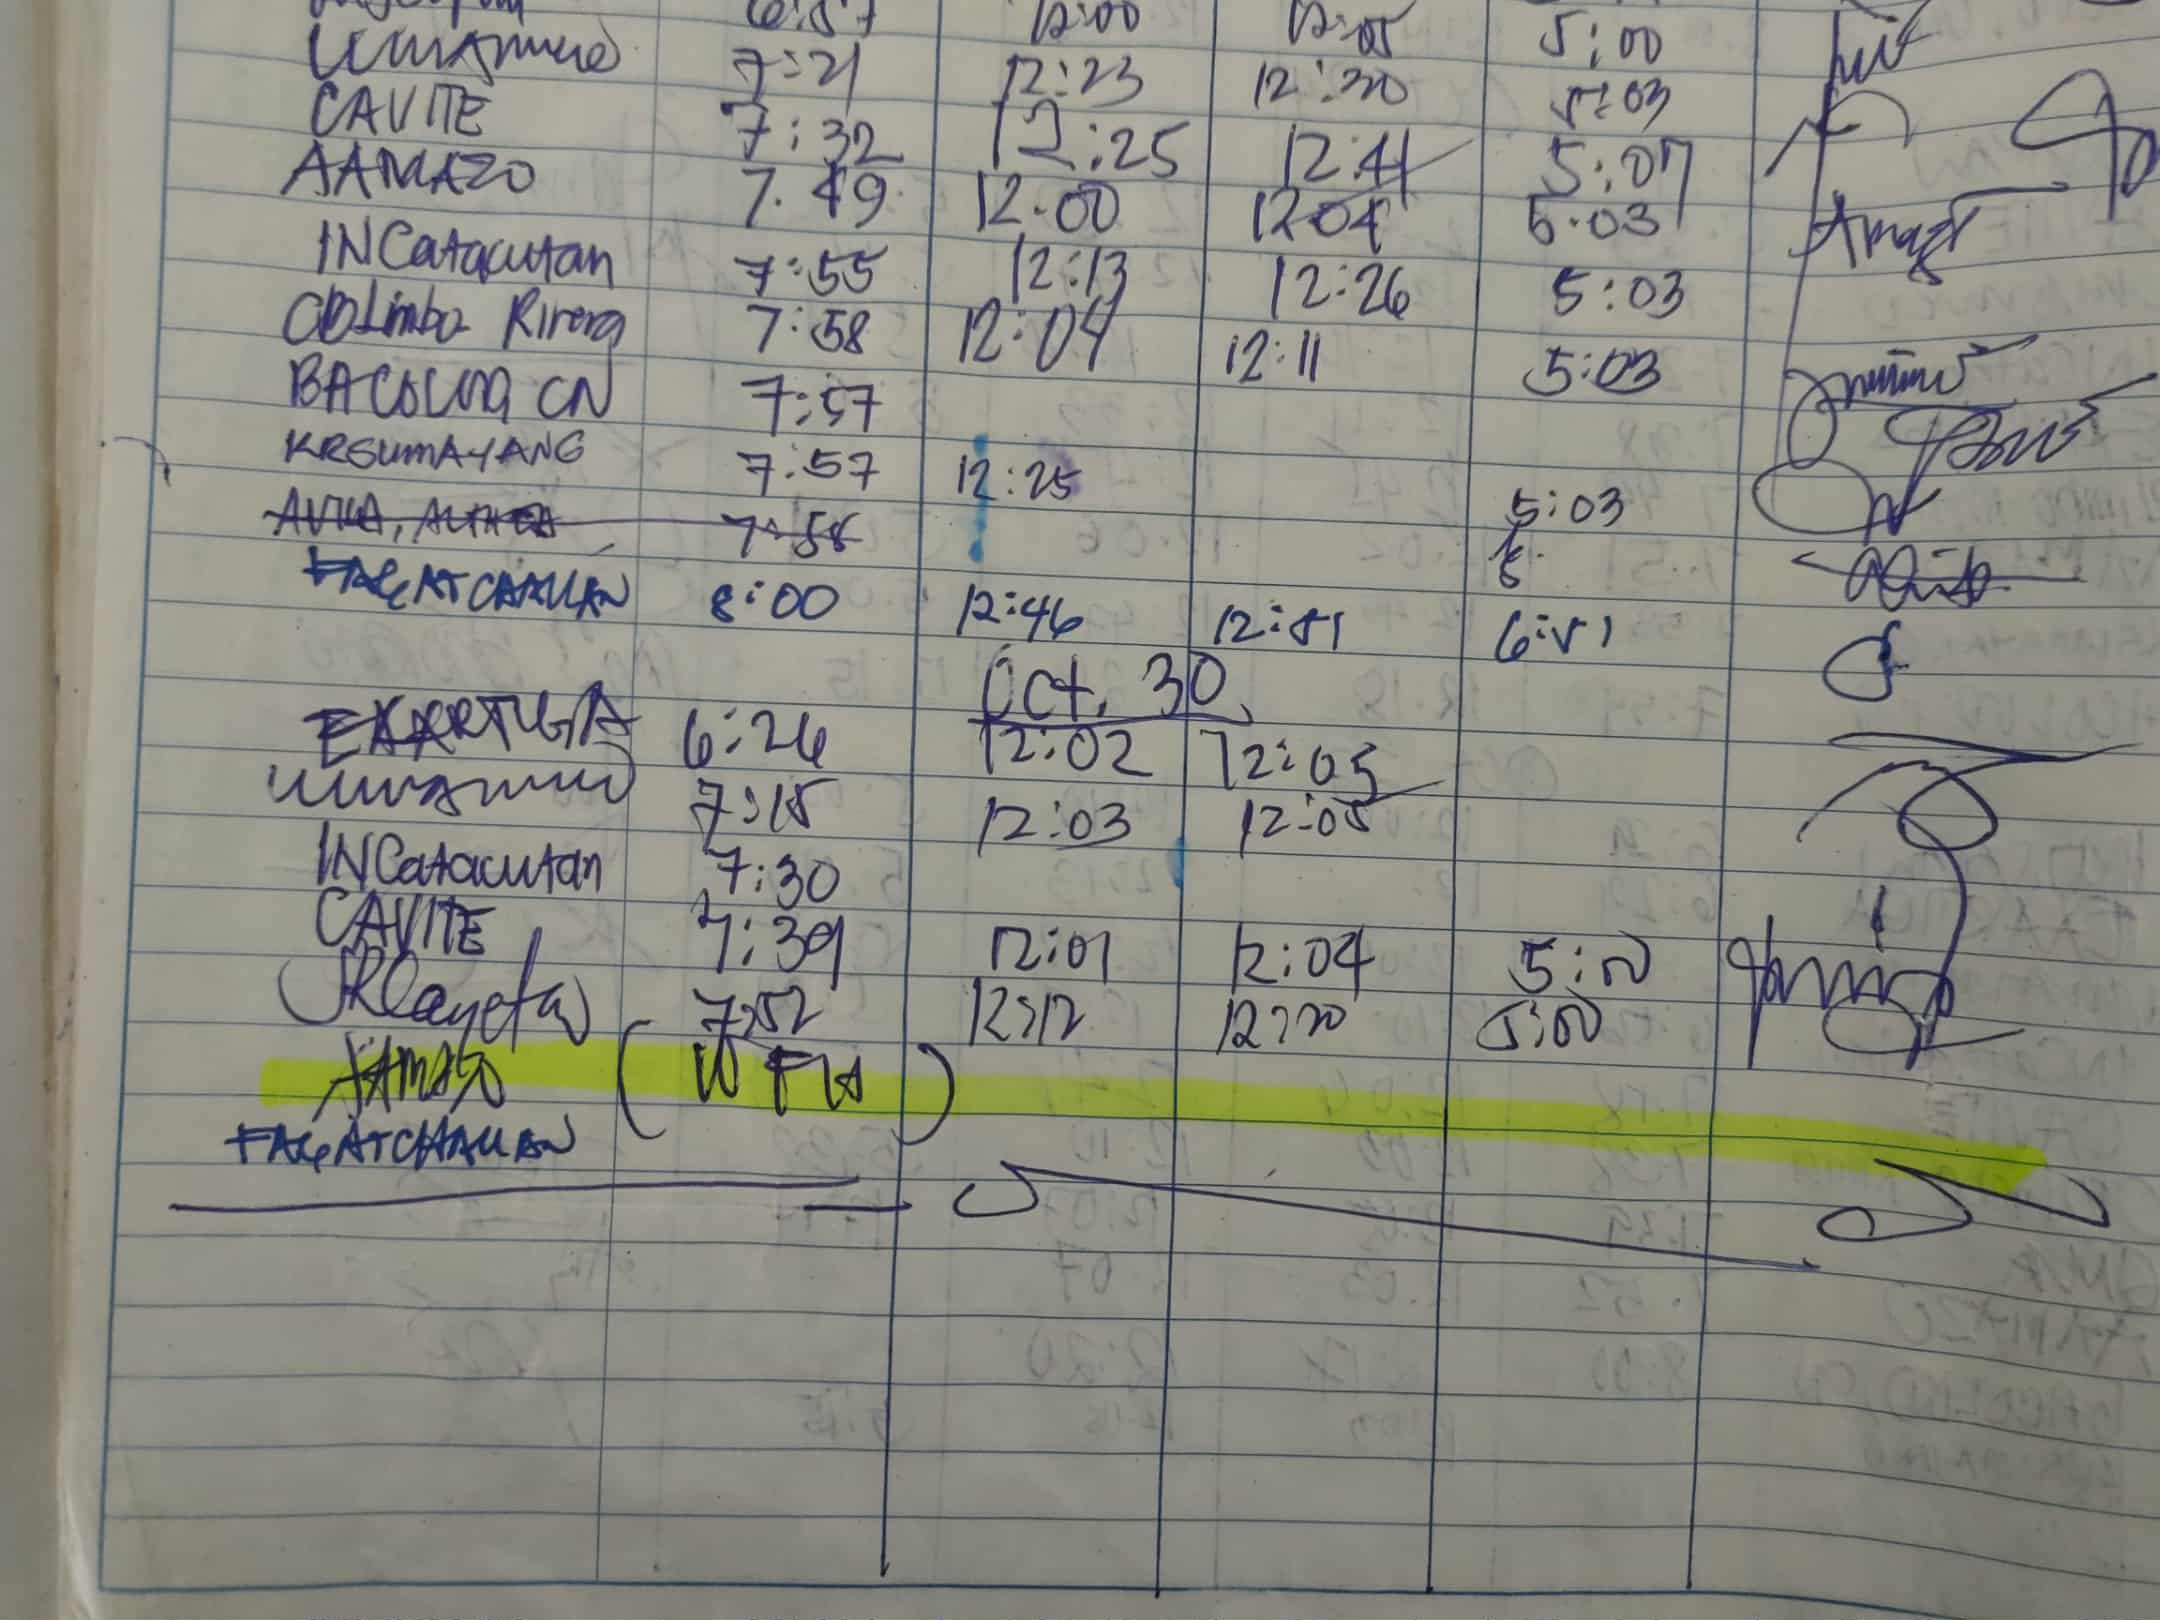 6:57 12:00 12:05 5:00
7:21 12:23 12:30 5:03
CAVITE 7:32 12:25 12:41 5:07
AAMAZO 7.49 12.00 1204 5.03
INCatacutan 7:55 12:13 12:26 5:03
CDLimbo Rivera 7:58 12:04 12:11 5:03
BACOLNG CN 7:57
KRSUMAYANG 7:57 12:25 5:03
7:58
FAGATCHALIAN 8:00 12:46 12:51 6:51
Oct. 30
EXARTUGA 6:26 12:02 12:05
7:15 12:03 12:05
INCatacutan 7:30
CAVITE 7:39 12:01 12:04 5:00
7:52 12:12 12:20 5:00
AAMAZO (WFH)
FAGATCHALIAN